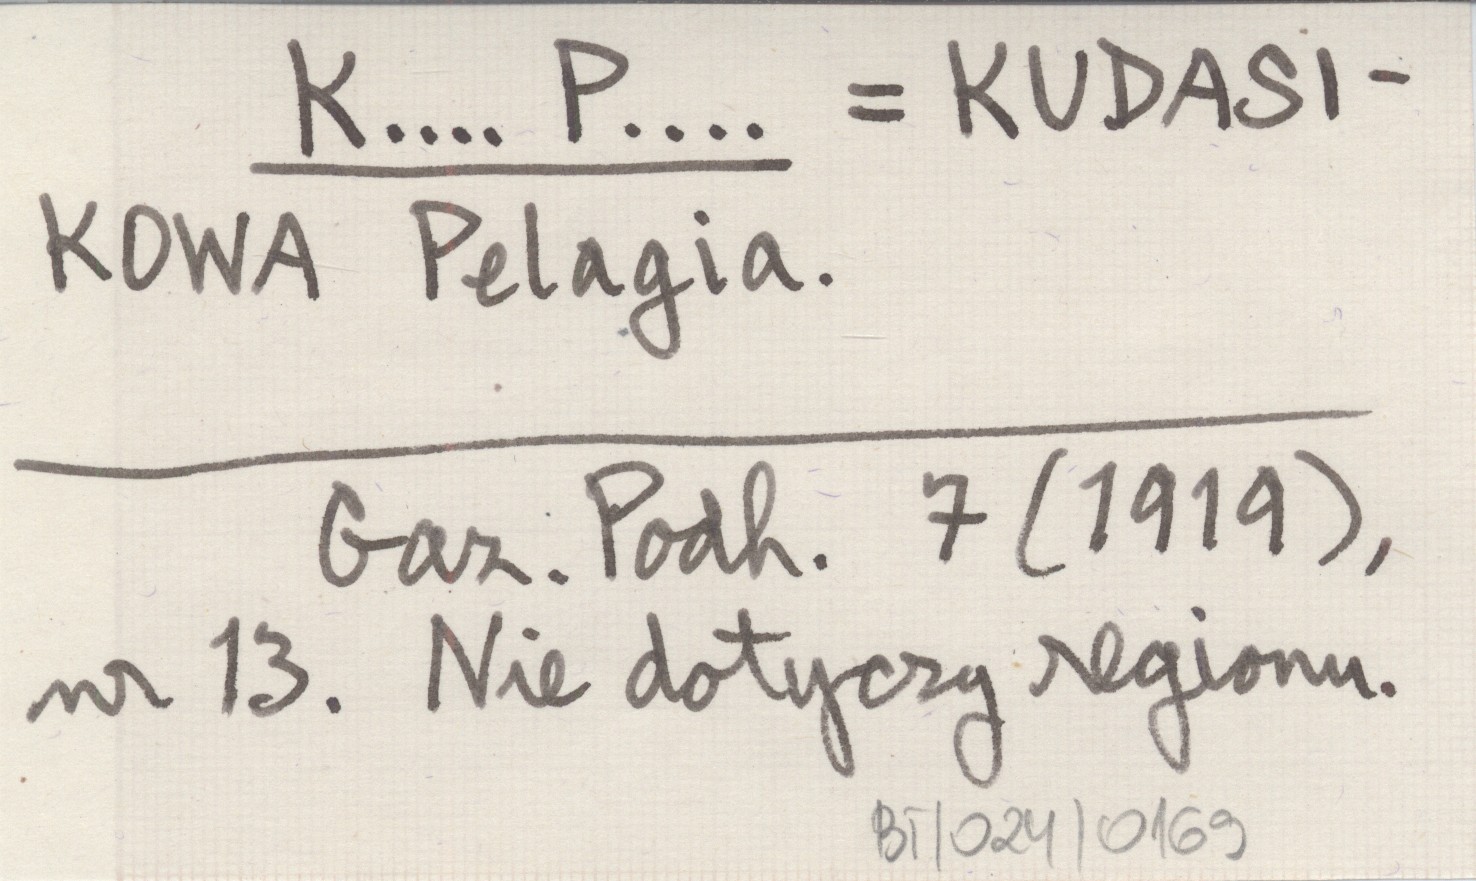 K.... P.... = KUDASI-
KOWA Pelagia.
Gaz. Podh. 7 (1919),
nr 13. Nie dotyczy regionu.
BT/024/0169